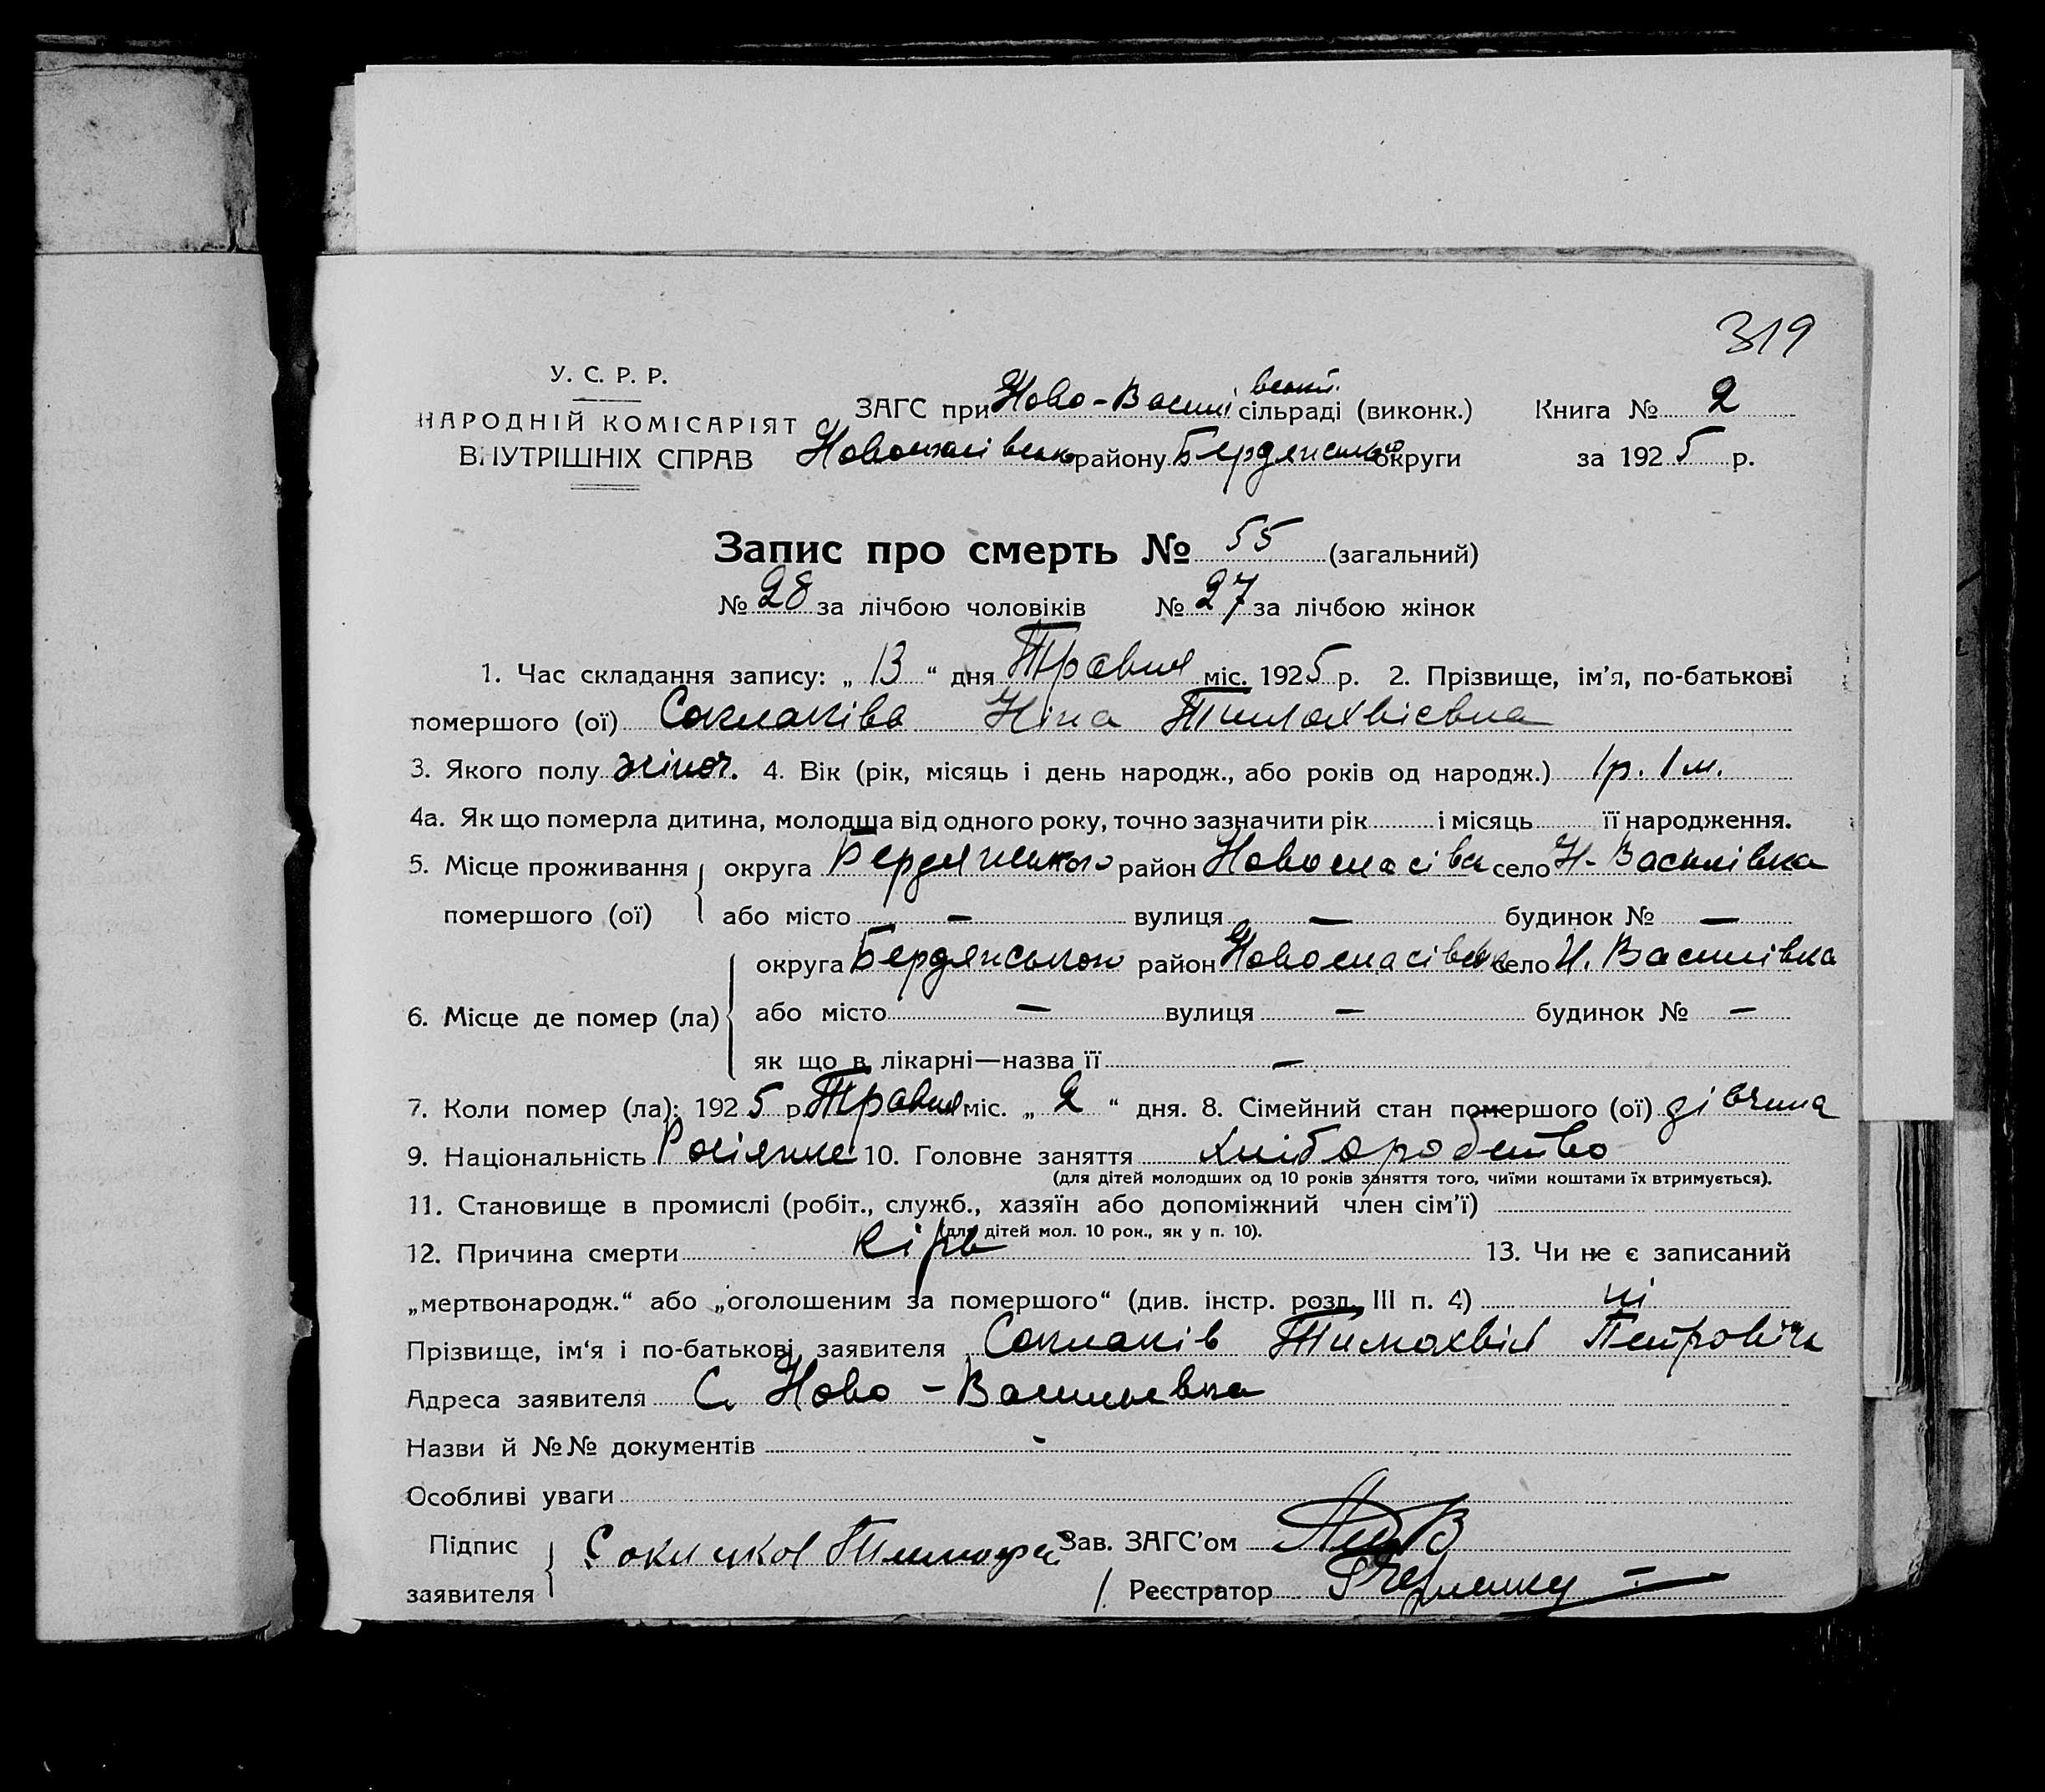 319
У. С. Р. Р.
НАРОДНІЙ КОМІСАРІЯТ
ВНУТРІШНІХ СПРАВ
ЗАГС при Ново-Василівській сільраді (виконк.) Книга № 2
району Бердянської округи за 1925 р.
Запис про смерть № 55 (загальний)
№ 28 за лічбою чоловіків № 27 за лічбою жінок
1. Час складання запису: „ 13 “ дня Травня міс. 1925 р. 2. Прізвище, ім’я, по-батькові
помершого (ої) Соклаківа Ніна Тимохвієвна
3. Якого полу жіноч. 4. Вік (рік, місяць і день народж., або років од народж.) 1 р. 1 м.
4а. Як що померла дитина, молодша від одного року, точно зазначити рік і місяць її народження.
5. Місце проживання округа Бердянського район Новоспасівськ село Н-Василівка
помершого (ої) або місто — вулиця — будинок № —
округа Бердянською район Новоспасівськ село Н. Василівка
6. Місце де помер (ла) або місто — вулиця — будинок № —
як що в лікарні—назва її —
7. Коли помер (ла): 1925 р. Травня міс. „ 2 “ дня. 8. Сімейний стан помершого (ої) дівчина
9. Національність Росіянка 10. Головне заняття хліборобство
(для дітей молодших од 10 років заняття того, чиїми коштами їх втримується).
11. Становище в промислі (робіт., служб., хазяїн або допоміжний член сім’ї)
(для дітей мол. 10 рок., як у п. 10).
12. Причина смерти кірь 13. Чи не є записаний
„мертвонародж.“ або „оголошеним за помершого“ (див. інстр. розд. III п. 4) ні
Прізвище, ім‘я і по-батькові заявителя Соклаків Тимохвій Петровіч
Адреса заявителя С. Ново-Васильевка
Назви й №№ документів -
Особливі уваги
Підпис заявителя Тимофей Зав. ЗАГС’ом
Реєстратор